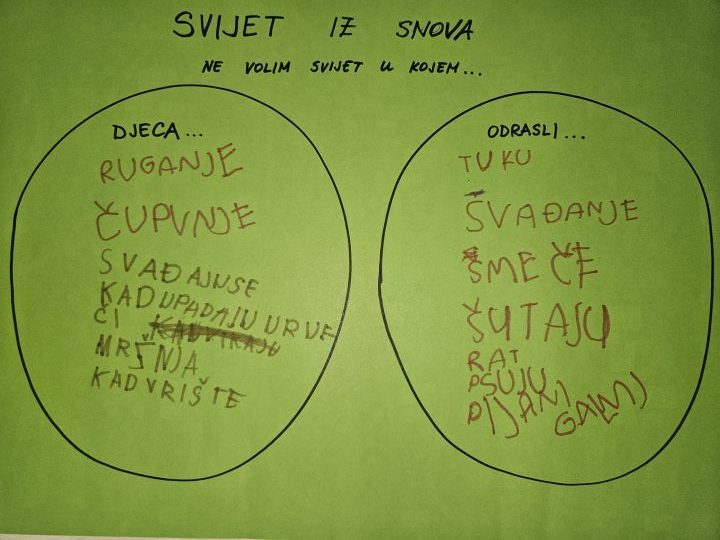 SVIJET IZ SNOVA
NE VOLIM SVIJET U KOJEM...
DJECA...
RUGANJE
ČUPVNJE
SVAĐAJUSE
KADUPADAJU URUE
ČI
MRŠNJA
KAD VRIŠTE
ODRASLI...
TUKU
SVAĐANJE
SMEČE
ŠUTAJU
RAT
PSUJU
PIJANI
GALAMJ